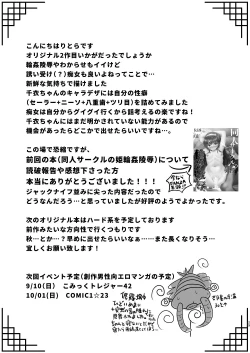 こんにちはりとらです
オリジナル2作目いかがだったでしょうか
輪姦陵辱やわからせもイイけど
誘い受け(?)痴女も良いよねってことで…
新鮮な気持ちで描けました
千衣ちゃんのキャラデザには自分の性癖
(セーラー+ニーソ+八重歯+ツリ目)を詰めてみました
痴女は自分からグイグイ行くから話考えるの楽ですね!
千衣ちゃんにはまだ明かされていない能力があるので
機会があったらどこかで出せたらいいですね。
この場で恐縮ですが、
前回の本(同人サークルの姫輪姦陵辱)について
読破報告や感想下さった方
本当にありがとうございました!!!
ジャックナイフ並みに尖った内容だったので
どうなんだろう…と思っていましたが好評のようでよかったです。
次のオリジナル本はハード系を予定しております
前作みたいな方向性で行くつもりです
秋…とか…?早めに出せたらいいなぁ……また長くなりそう…
宜しくお願い致します!
次回イベント予定(創作男性向エロマンガの予定)
9/10(日) こみっくトレジャー42
10/01(日) COMIC1☆23